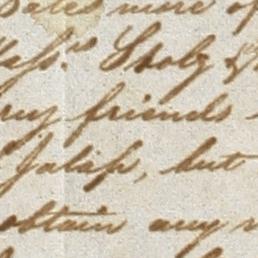 Bales more of
Mess.rs Stolz &
my friends
Jalap, but
obtain any